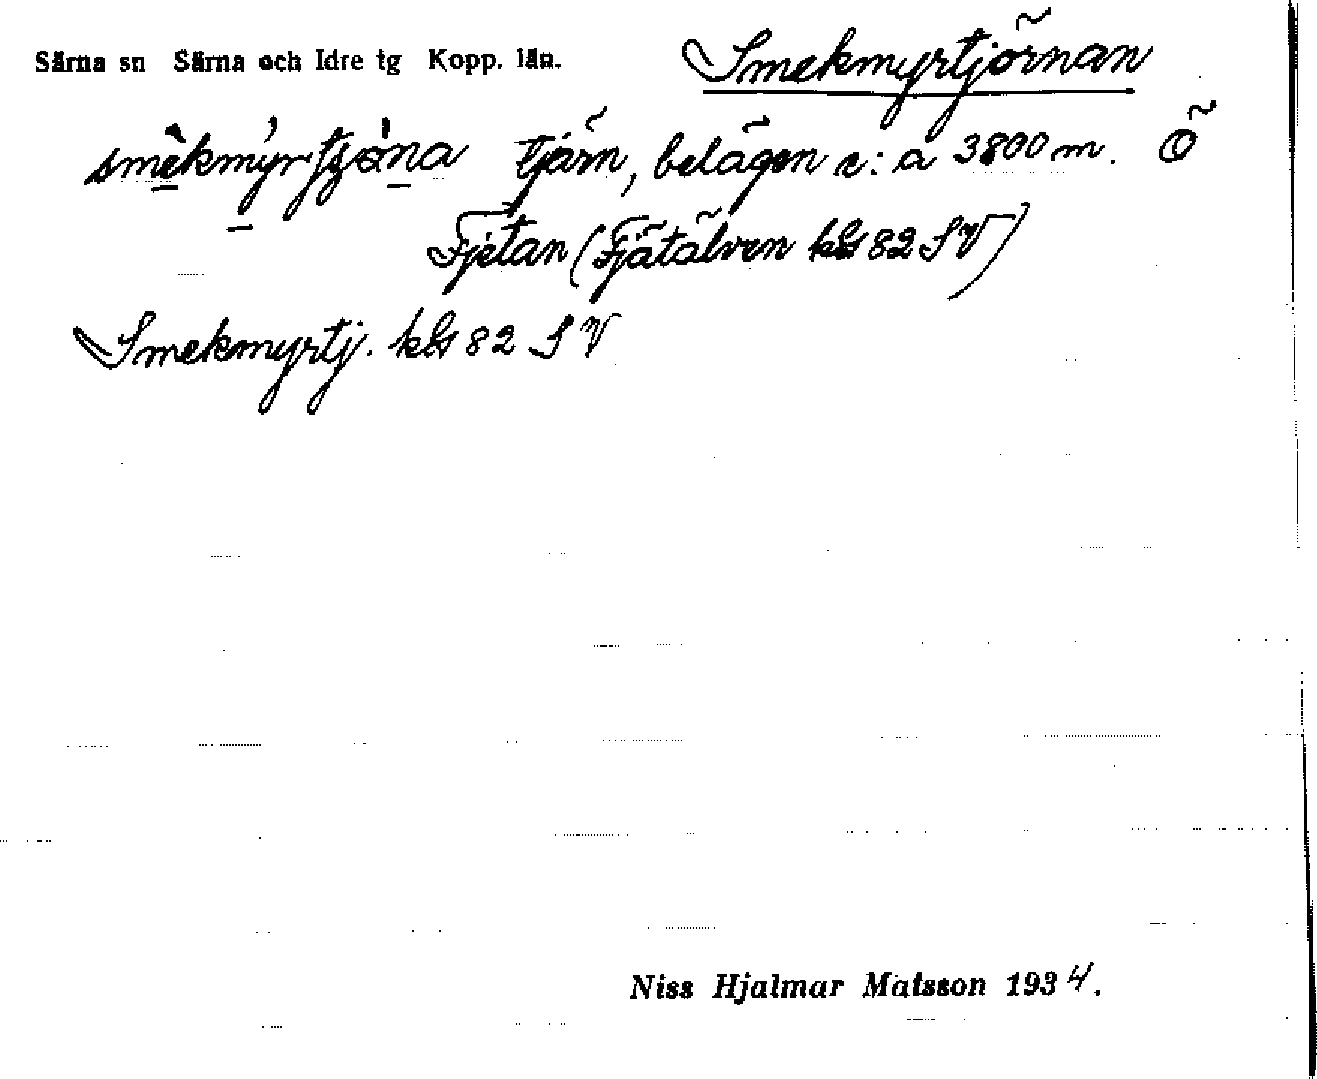 Särna sn Särna och Idre tg Kopp. län. Smekmyrtjörnan
tjärn, belägen c:a 3800 m. Ö
Fjetan (Fjätälven kbl 82 SV)
Smekmyrtj. kbl 82 SV
Niss Hjalmar Matsson 1934.